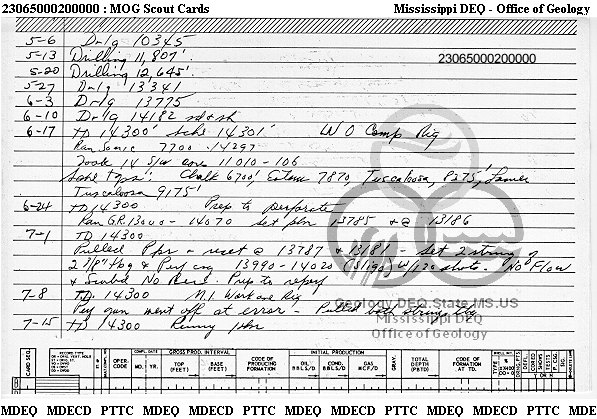 23065000200000 : MOG Scout Cards Mississippi DEQ - Office of Geology
5-6 Drlg 10345
5-13 Drilling 11,807' 23065000200000
5-20 Drilling 12,645'
5-27 Drlg 13341
6-3 Drlg 13775
6-10 Drlg 14182 sd & sh
6-17 TD 14300' Schl 14301' WO Comp Rig
Ran Sonic 7700 - 14297
Took 14 S/W cores 11010-106
Schl tops: Chalk 6700', Eutaw 7870, Tuscaloosa, 8275', Lower
Tuscaloosa 9175'
6-24 TD 14300 Prep to perforate
Ran G.R. 13000 - 14070 set pkr 13785 & @ 13186
7-1 TD 14300
Pulled Pkr & reset @ 13787 & 13181 - Set 2 string of
2 7/8" tbg & Perf csg 13990-14020 w/120 shots. No Flow
& Swabd No Rec. Prep to reperf
7-8 TD 14300 M.I. Workover Rig
Perf gun went off at error - Pulled both strings tbg
7-15 TD 14300 Running pkr
Geology.DEQ.State.MS.US
Mississippi DEQ
Office of Geology
CARD SEQ. OPER-CODE COMPL. DATE GROSS PROD. INTERVAL CODE OF PRODUCING FORMATION INITIAL PRODUCTION GRAV. TOTAL DEPTH (PBTD) CODE OF FORMATION AT TD.
MO. YR. TOP (FEET) BASE (FEET) OIL BBLS/D COND. BBLS/D GAS MCF/D
MDEQ MDECD PTTC MDEQ MDECD PTTC MDEQ MDECD PTTC MDEQ MDECD PTTC MDEQ